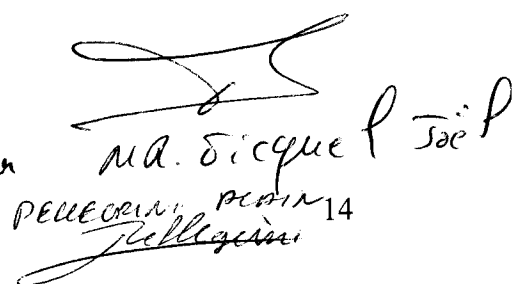 MR. Jicquel Joël
PELLEGRINI ALAIN 14
Pellegrini